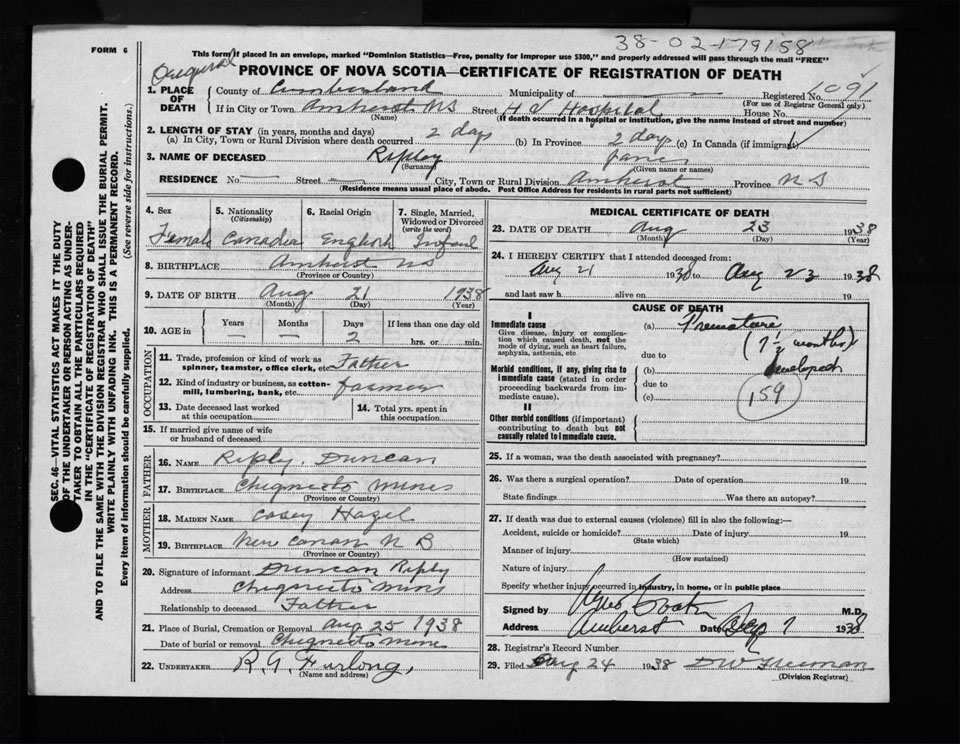 38-02-179158
FORM 6
This form if placed in an envelope, marked "Dominion Statistics—Free, penalty for improper use $300," and properly addressed will pass through the mail "FREE"
PROVINCE OF NOVA SCOTIA—CERTIFICATE OF REGISTRATION OF DEATH
1. PLACE OF DEATH
County of Cumberland Municipality of Registered No. 091
(For use of Registrar General only)
If in City or Town Amherst NS Street H V Hospital House No.
(Name) (If death occurred in a hospital or institution, give the name instead of street and number)
2. LENGTH OF STAY (in years, months and days)
(a) In City, Town or Rural Division where death occurred 2 days (b) In Province 2 days (c) In Canada (if immigrant)
3. NAME OF DECEASED Ripley
(Surname) (Given name or names)
RESIDENCE No. Street City, Town or Rural Division Amherst Province NS
(Residence means usual place of abode. Post Office Address for residents in rural parts not sufficient)
4. Sex 5. Nationality (Citizenship) 6. Racial Origin 7. Single, Married, Widowed or Divorced (write the word)
Female Canadian English Infant
8. BIRTHPLACE Amherst NS
(Province or Country)
9. DATE OF BIRTH Aug 21 1938
(Month) (Day) (Year)
10. AGE in Years Months Days If less than one day old
2 hrs. or min.
OCCUPATION
11. Trade, profession or kind of work as spinner, teamster, office clerk, etc. Father
12. Kind of industry or business, as cotton-mill, lumbering, bank, etc. farmer
13. Date deceased last worked at this occupation
14. Total yrs. spent in this occupation
15. If married give name of wife or husband of deceased
FATHER
16. NAME Riply. Duncan
17. BIRTHPLACE Chignecto Mines
(Province or Country)
MOTHER
18. MAIDEN NAME Casey Hazel
19. BIRTHPLACE New Canan N B
(Province or Country)
20. Signature of informant Duncan Riply
Address Chignecto Mines
Relationship to deceased Father
21. Place of Burial, Cremation or Removal Aug 25 1938
Date of burial or removal Chignecto Mine
22. UNDERTAKER R. G. Furlong,
(Name and address)
MEDICAL CERTIFICATE OF DEATH
23. DATE OF DEATH Aug 23 1938
(Month) (Day) (Year)
24. I HEREBY CERTIFY that I attended deceased from:
Aug 21 1938 to Aug 23 1938
and last saw h alive on 19
CAUSE OF DEATH
I
Immediate cause
Give disease, injury or complication which caused death, not the mode of dying, such as heart failure, asphyxia, asthenia, etc
(a) Premature
due to (7½ months)
Morbid conditions, if any, giving rise to immediate cause (stated in order proceeding backwards from immediate cause).
(b) developed
due to
(c)
159
II
Other morbid conditions (if important) contributing to death but not causally related to immediate cause.
25. If a woman, was the death associated with pregnancy?
26. Was there a surgical operation? Date of operation 19
State findings Was there an autopsy?
27. If death was due to external causes (violence) fill in also the following:—
Accident, suicide or homicide? Date of injury 19
(State which)
Manner of injury
(How sustained)
Nature of injury
Specify whether injury occurred in industry, in home, or in public place
Signed by M.D.
Address Amherst Date Sep 7 1938
28. Registrar's Record Number
29. Filed Aug 24 1938 DW Freeman
(Division Registrar)
SEC. 46—VITAL STATISTICS ACT MAKES IT THE DUTY
OF THE UNDERTAKER OR PERSON ACTING AS UNDER-
TAKER TO OBTAIN ALL THE PARTICULARS REQUIRED
IN THE "CERTIFICATE OF REGISTRATION OF DEATH"
AND TO FILE THE SAME WITH THE DIVISION REGISTRAR WHO SHALL ISSUE THE BURIAL PERMIT.
WRITE PLAINLY WITH UNFADING INK. THIS IS A PERMANENT RECORD.
Every item of information should be carefully supplied. (See reverse side for instructions.)